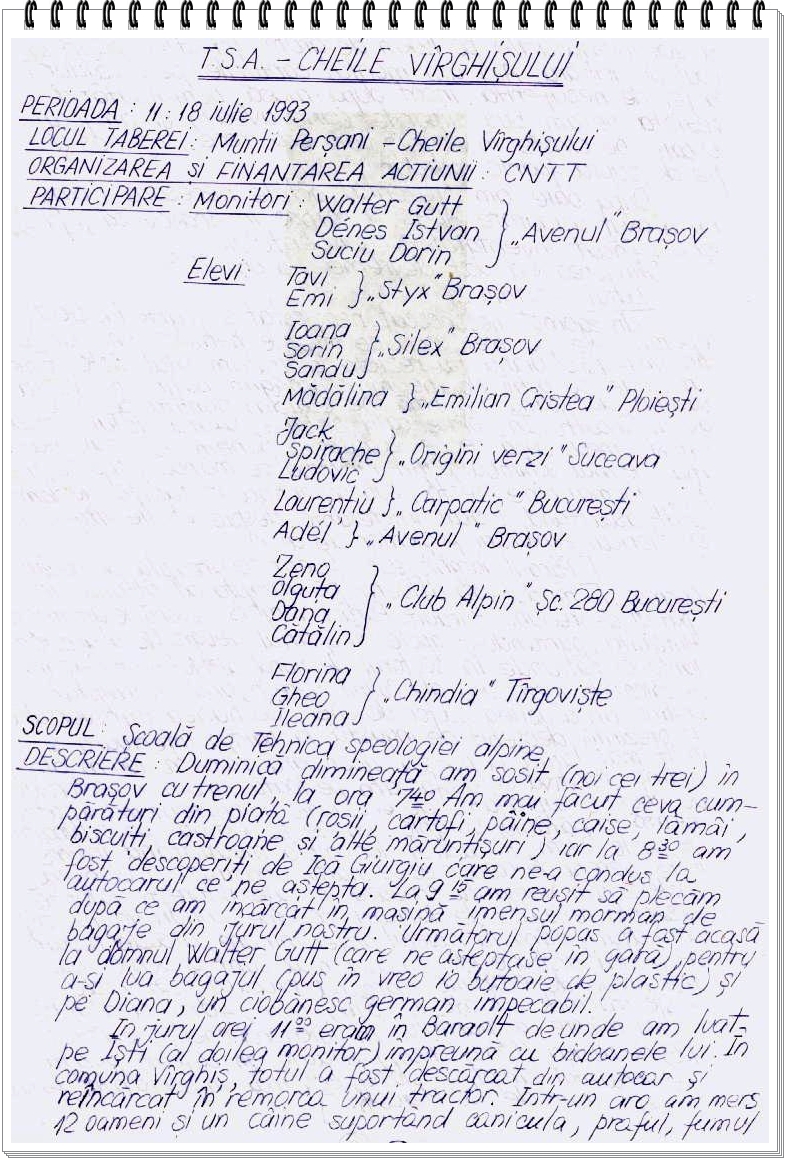 T.S.A. – CHEILE VÎRGHIȘULUI
PERIOADA : 11÷18 iulie 1993
LOCUL TABEREI : Muntii Perșani – Cheile Vîrghișului
ORGANIZAREA și FINANTAREA ACTIUNII : CNTT
PARTICIPARE : Monitori : Walter Gutt
Dénes Istvan } „Avenul" Brașov
Suciu Dorin
Elevi : Tavi
Emi } „Styx" Brașov
Ioana
Sorin } „Silex" Brașov
Sandu
Mădălina } „Emilian Cristea" Ploiești
Jack
Spirache } „Origini verzi" Suceava
Ludovic
Laurentiu } „Carpatic" București
Adél } „Avenul" Brașov
Zeno
Olguța } „Club Alpin" Șc. 280 București
Dana
Cătălin
Florina
Gheo } „Chindia" Tîrgoviște
Ileana
SCOPUL : Școală de Tehnica speologiei alpine
DESCRIERE : Duminică dimineață am sosit (noi cei trei) în
Brașov cu trenul, la ora 7⁴⁰. Am mai făcut ceva cum-
părături din piată (rosii, cartofi, pâine, caise, lămâi,
biscuiti, castroane si alte măruntișuri) iar la 8³⁰ am
fost descoperiți de Ică Giurgiu care ne-a condus la
autocarul ce ne astepta. La 9¹⁵ am reușit să plecăm
după ce am încărcat în mașină imensul morman de
bagaje din jurul nostru. Următorul popas a fost acasă
la domnul Walter Gutt (care ne asteptase în gară), pentru
a-si lua bagajul (pus în vreo 10 butoaie de plastic) și
pe Diana, un ciobănesc german impecabil.
In jurul orei 11³⁰ eram în Baraolt de unde am luat-
pe Iști (al doilea monitor) împreună cu bidoanele lui. În
comuna Vîrghiș, totul a fost descărcat din autocar și
reîncărcat în remorca unui tractor. Intr-un aro am mers
12 oameni și un câine suportând canicula, praful, fumul